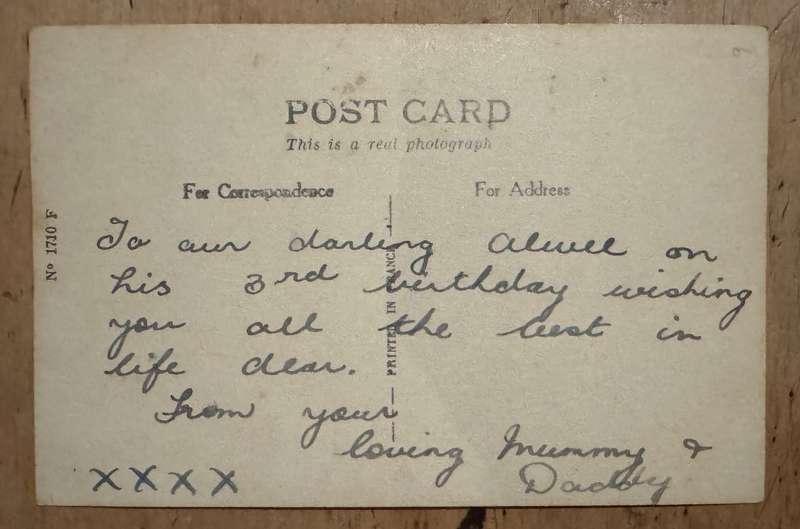 9
POST CARD
This is a real photograph
For Correspondence
For Address
Nº 1710 F
PRINTED IN FRANCE
To our darling on
his 3rd birthday wishing
you all the best in
life dear.
From your
loving Mummy &
Daddy
XXXX